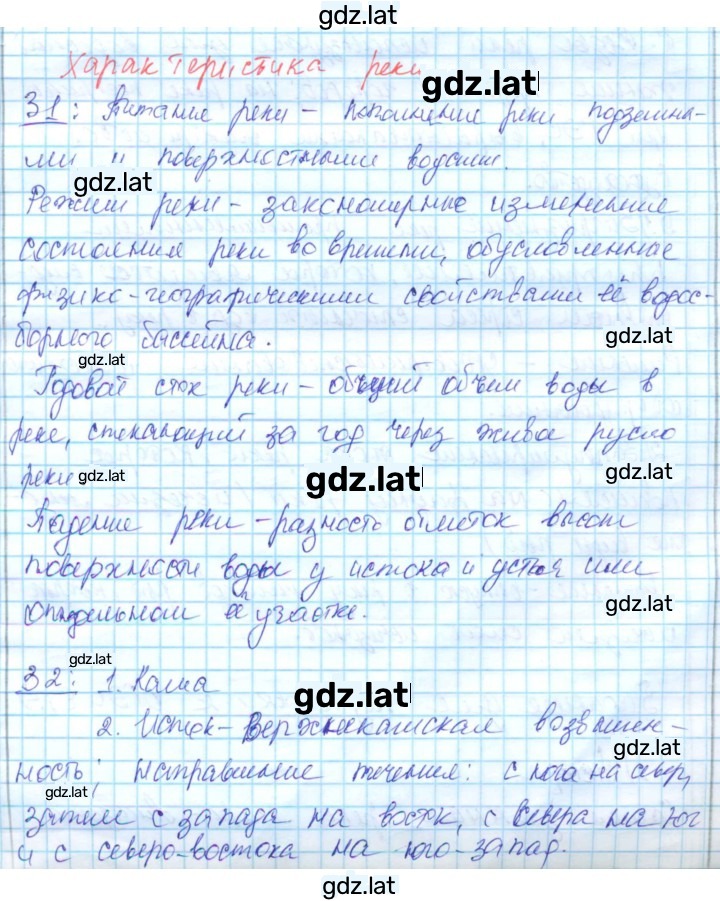 gdz.lat
Характеристика реки
gdz.lat
З1: Питание реки - пополнение реки подземны-
ми и поверхностными водами.
gdz.lat
Режим реки - закономерные изменения
состояния реки во времени, обусловленные
физико-географическими свойствами её водос-
борного бассейна.
gdz.lat
gdz.lat
Годовой сток реки - общий объем воды в
реке, стекающий за год через живое русло
реки.
gdz.lat
gdz.lat
gdz.lat
Падение реки - разность отметок высот
поверхности воды у истока и устья или
отдельном её участке.
gdz.lat
gdz.lat
З2: 1. Кама
gdz.lat
2. Исток - Верхнекамская возвышен-
gdz.lat
ность; направление течения: с юга на север,
gdz.lat
затем с запада на восток, с севера на юг
и с северо-востока на юго-запад.
gdz.lat